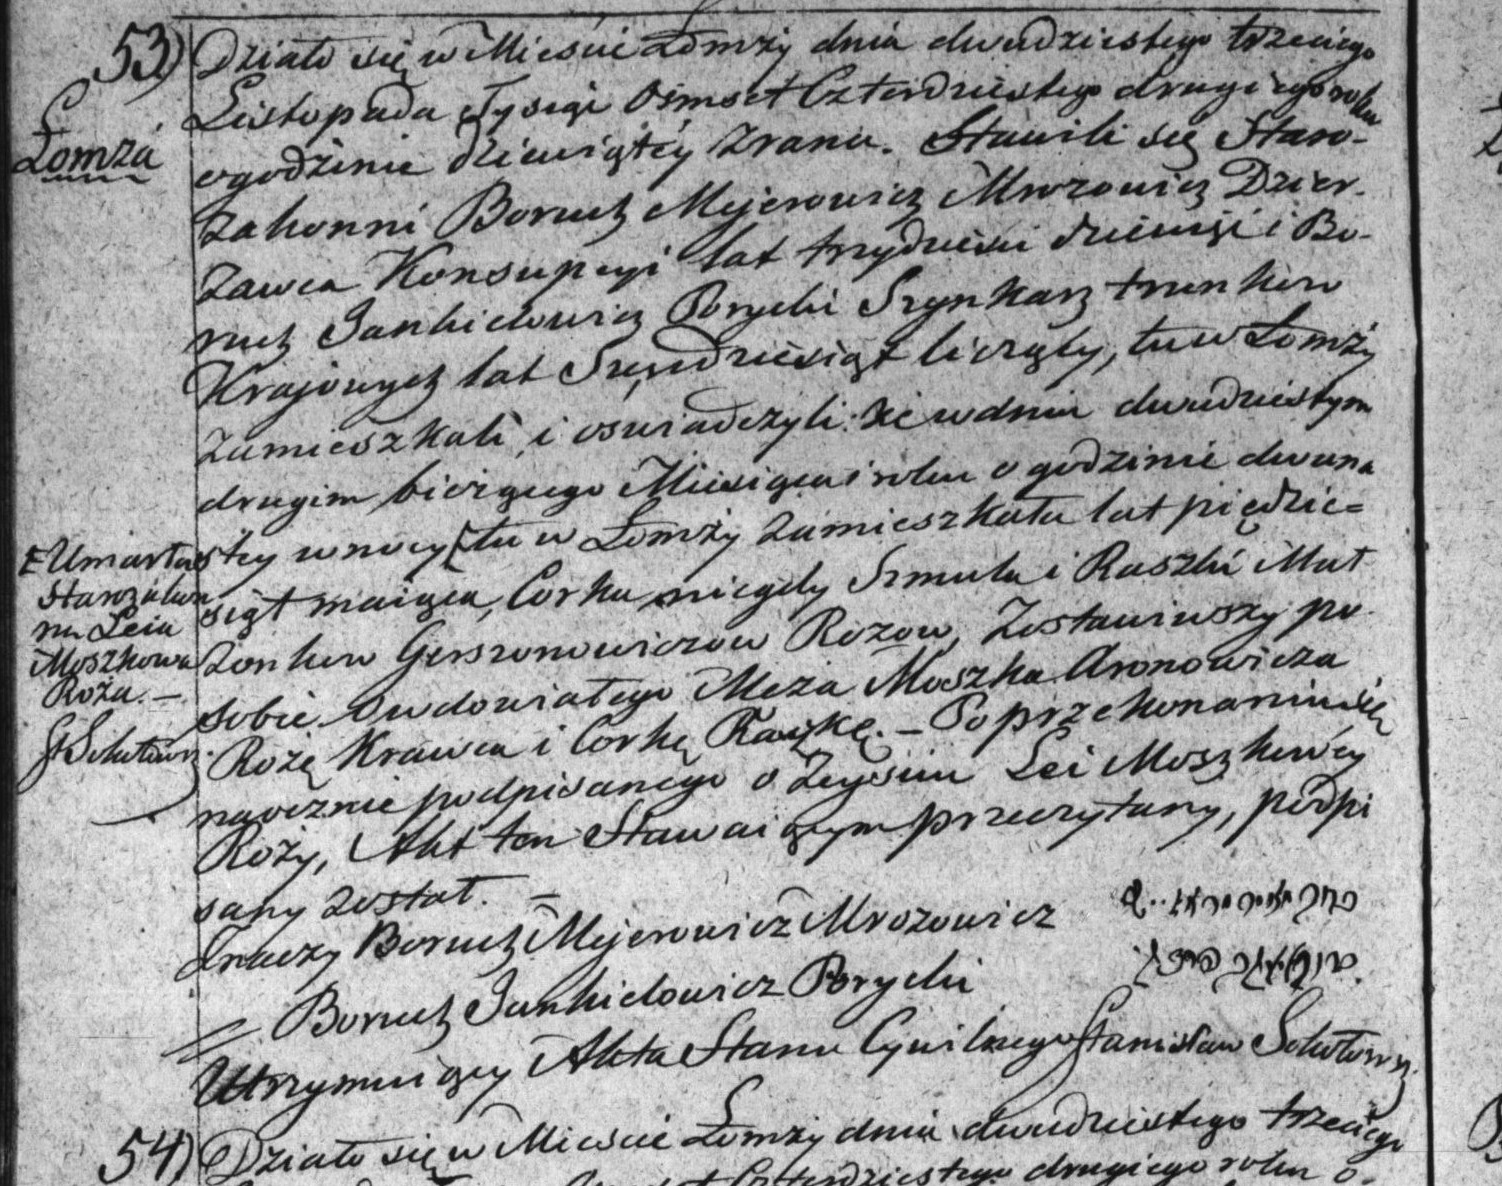 53) Działo się w Mieście Łomży dnia dwudziestego trzeciego
Łomża
Listopada Tysiąc Ośmset Czterdziestego drugiego roku
o godzinie dziewiątéy zrana. Stawili się Staro-
zakonni Boruch Mejerowicz Mrozowicz Dzier-
zawca Konsupcyi lat trzydzieści dziewięć i Bo-
ruch Jankielowicz Porycki Szynkarz trunkow
Krajowych lat Sześćdziesiąt liczący, tu w Łomży
zamieszkali, i oswiadczyli: że w dniu dwudziestym
drugim bieżącego Miesiąca i roku o godzinie dwuna
stey w nocy [tu w Łomży zamieszkała lat pięćdzie=
[Umarła
Starozakon
na Leia
Moszkowa
Roża. —
siąt maiąca, Corka niegdy Szmula i Raszki Mał
żonkow Gerszonowiczow Rożow, Zostawiwszy po
sobie owdowiałego Męża Moszka Aronowicza
Rożę Krawca i Corkę Raszkę. — Po przekonaniu się
naocznie podpisanego o Zeyściu Lei Moszkowéy
Roży, Akt ten Stawaiącym przeczytany, podpi
sany został. =
Znaczy Boruch Mejerowicz Mrozowicz
Boruch Jankielowicz Porycki
Utrzymuiący Akta Stanu Cywilnego Stanisław
54) Działo się w Mieście Łomży dnia dwudziestego trzeciego
Czterdziestego drugiego roku o